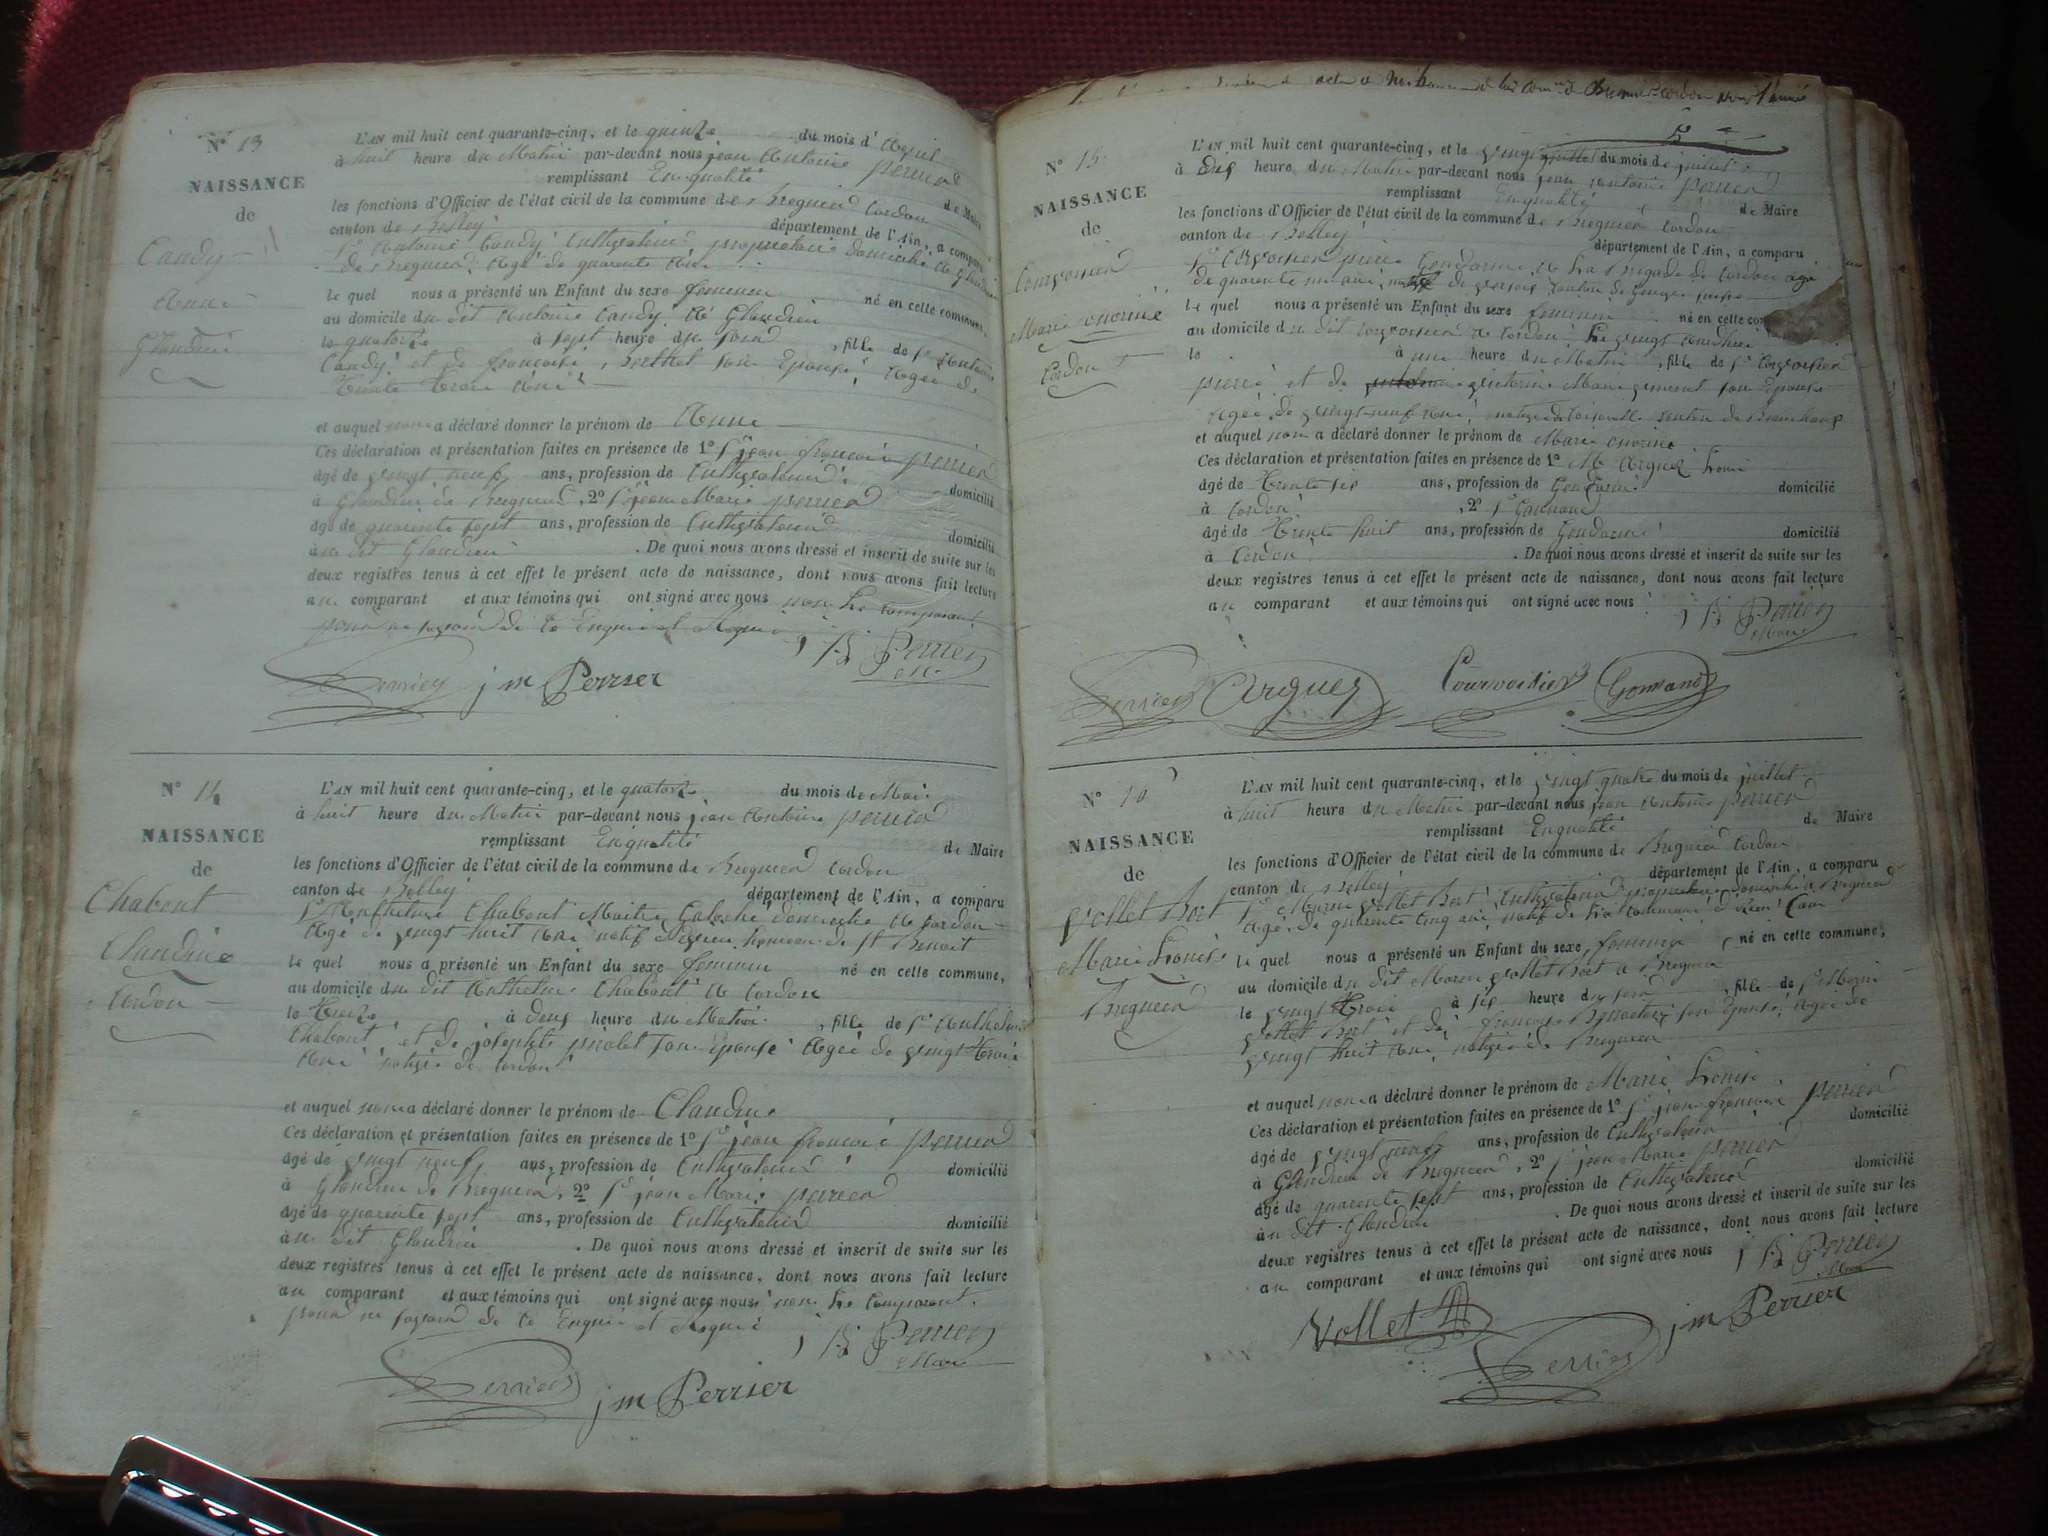 N° 13
NAISSANCE
de
Candy
Anne
Glandieu
L'AN mil huit cent quarante-cinq, et le quinze du mois d'Avril
à huit heure du Matin par-devant nous jean Antoine perrier
remplissant En qualité de Maire
les fonctions d'Officier de l'état civil de la commune de Bregnier Cordon
canton de Belley département de l'Ain, a comparu
Sr Antoine Candy Cultivateur propriétaire domicilié a Glandieu
de Bregnier Agé de quarante Ans
le quel nous a présenté un Enfant du sexe feminin né en cette commune,
au domicile du dit Antoine Candy A Glandieu
le quatorze à sept heure du soir, fille de Sr Antoine
Candy et de francoise Berthet son Epouse Agée de
trente trois Ans
et auquel nous a déclaré donner le prénom de Anne
Ces déclaration et présentation faites en présence de 1° Sr jean francois perrier
âgé de vingt neuf ans, profession de Cultivateur domicilié
à Glandieu de Bregnier, 2° Sr jean Marie perrier
âgé de quarante sept ans, profession de Cultivateur domicilié
au dit Glandieu. De quoi nous avons dressé et inscrit de suite sur les
deux registres tenus à cet effet le présent acte de naissance, dont nous avons fait lecture
au comparant et aux témoins qui ont signé avec nous non Le comparant
pour ne savoir de ce Enquis et Requis
Perrier
Perrier jm Perrier
N° 14
NAISSANCE
de
Chabout
Claudine
Cordon
L'AN mil huit cent quarante-cinq, et le quatorze du mois de Mai
à huit heure du Matin par-devant nous jean Antoine perrier
remplissant En qualité de Maire
les fonctions d'Officier de l'état civil de la commune de Bregnier Cordon
canton de Belley département de l'Ain, a comparu
Sr Anthelme Chabout domicilié A Cordon
Agé de vingt huit Ans natif de St Benoit
le quel nous a présenté un Enfant du sexe feminin né en cette commune,
au domicile du dit Anthelme Chabout A Cordon
le treize à deux heure du Matin, fille de Sr Anthelme
Chabout et de josephte son Epouse Agée de vingt trois
Ans native de Cordon
et auquel nous a déclaré donner le prénom de Claudine
Ces déclaration et présentation faites en présence de 1° Sr jean francois perrier
âgé de vingt neuf ans, profession de Cultivateur domicilié
à Glandieu de Bregnier, 2° Sr jean Marie perrier
âgé de quarante sept ans, profession de Cultivateur domicilié
au dit Glandieu. De quoi nous avons dressé et inscrit de suite sur les
deux registres tenus à cet effet le présent acte de naissance, dont nous avons fait lecture
au comparant et aux témoins qui ont signé avec nous non Le Comparant
pour ne savoir de ce Enquis et Requis
Perrier
Maire
Perrier jm Perrier
N° 15
NAISSANCE
de
Courvoisier
Marie onorine
Cordon
L'AN mil huit cent quarante-cinq, et le vingt juillet du mois de juillet
à dix heure du Matin par-devant nous jean Antoine perrier
remplissant En qualité de Maire
les fonctions d'Officier de l'état civil de la commune de Bregnier Cordon
canton de Belley département de l'Ain, a comparu
Sr Corvoisier pierre Gendarme A La Brigade de Cordon agé
de quarante
le quel nous a présenté un Enfant du sexe feminin né en cette
au domicile du dit Corvoisier A Cordon Le vingt
le à une heure du Matin, fille de Sr Corvoisier
pierre et de Marie son Epouse
Agée de vingt-neuf Ans
et auquel nous a déclaré donner le prénom de Marie onorine
Ces déclaration et présentation faites en présence de 1° Mr Arguez Louis
âgé de trente six ans, profession de Gendarme domicilié
à Cordon, 2° Sr Gonnand
âgé de trente huit ans, profession de Gendarme domicilié
à Cordon. De quoi nous avons dressé et inscrit de suite sur les
deux registres tenus à cet effet le présent acte de naissance, dont nous avons fait lecture
au comparant et aux témoins qui ont signé avec nous
Perrier
Maire
Perrier Arguez Courvoisier Gonnand
N° 16
NAISSANCE
de
Vollet Bert
Marie Louise
Bregnier
L'AN mil huit cent quarante-cinq, et le vingt quatre du mois de juillet
à huit heure du Matin par-devant nous jean Antoine perrier
remplissant En qualité de Maire
les fonctions d'Officier de l'état civil de la commune de Bregnier Cordon
canton de Belley département de l'Ain, a comparu
Sr vollet Bert Cultivateur propriétaire domicilié a Bregnier
Agé de quarante cinq ans natif de La commune
le quel nous a présenté un Enfant du sexe feminin, né en cette commune,
au domicile du dit vollet Bert a Bregnier
le vingt trois à six heure du soir, fille de Sr
vollet Bert et de francoise son Epouse Agée de
vingt huit Ans native de Bregnier
et auquel nous a déclaré donner le prénom de Marie Louise
Ces déclaration et présentation faites en présence de 1° Sr jean francois perrier
âgé de vingt neuf ans, profession de Cultivateur domicilié
à Glandieu de Bregnier, 2° Sr jean Marie perrier
âgé de quarante sept ans, profession de Cultivateur domicilié
au dit Glandieu. De quoi nous avons dressé et inscrit de suite sur les
deux registres tenus à cet effet le présent acte de naissance, dont nous avons fait lecture
au comparant et aux témoins qui ont signé avec nous
Perrier
Maire
Vollet jm Perrier
Perrier